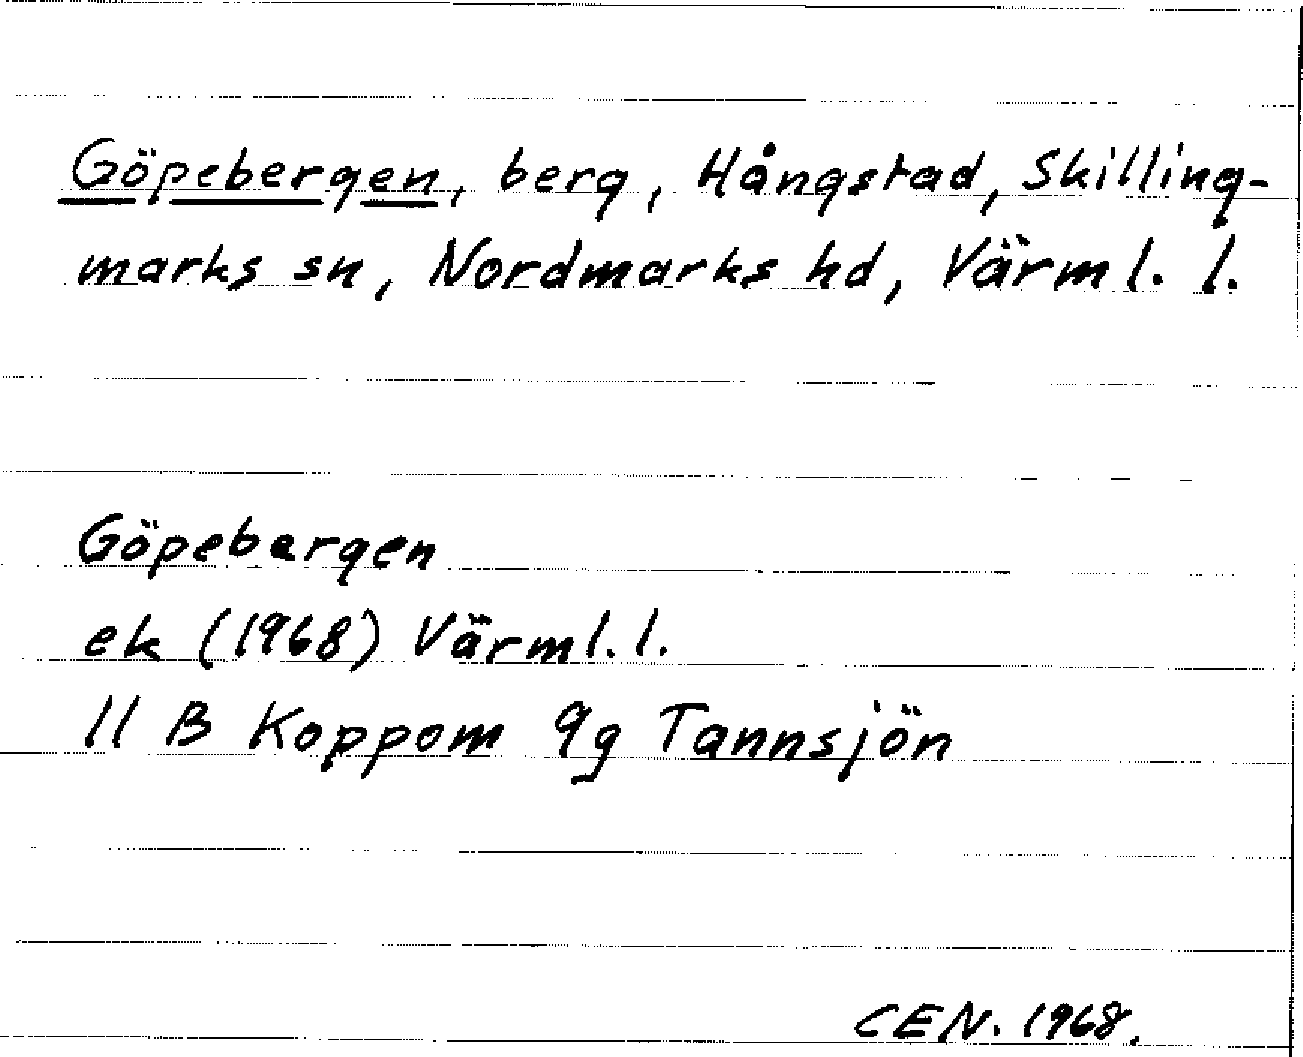 Göpebergen, berg, Hångstad, Skilling-
marks sn, Nordmarks hd, Värml. l.
Göpebergen
ek (1968) Värml. l.
11 B Koppom 9g Tannsjön
CEN. 1968.